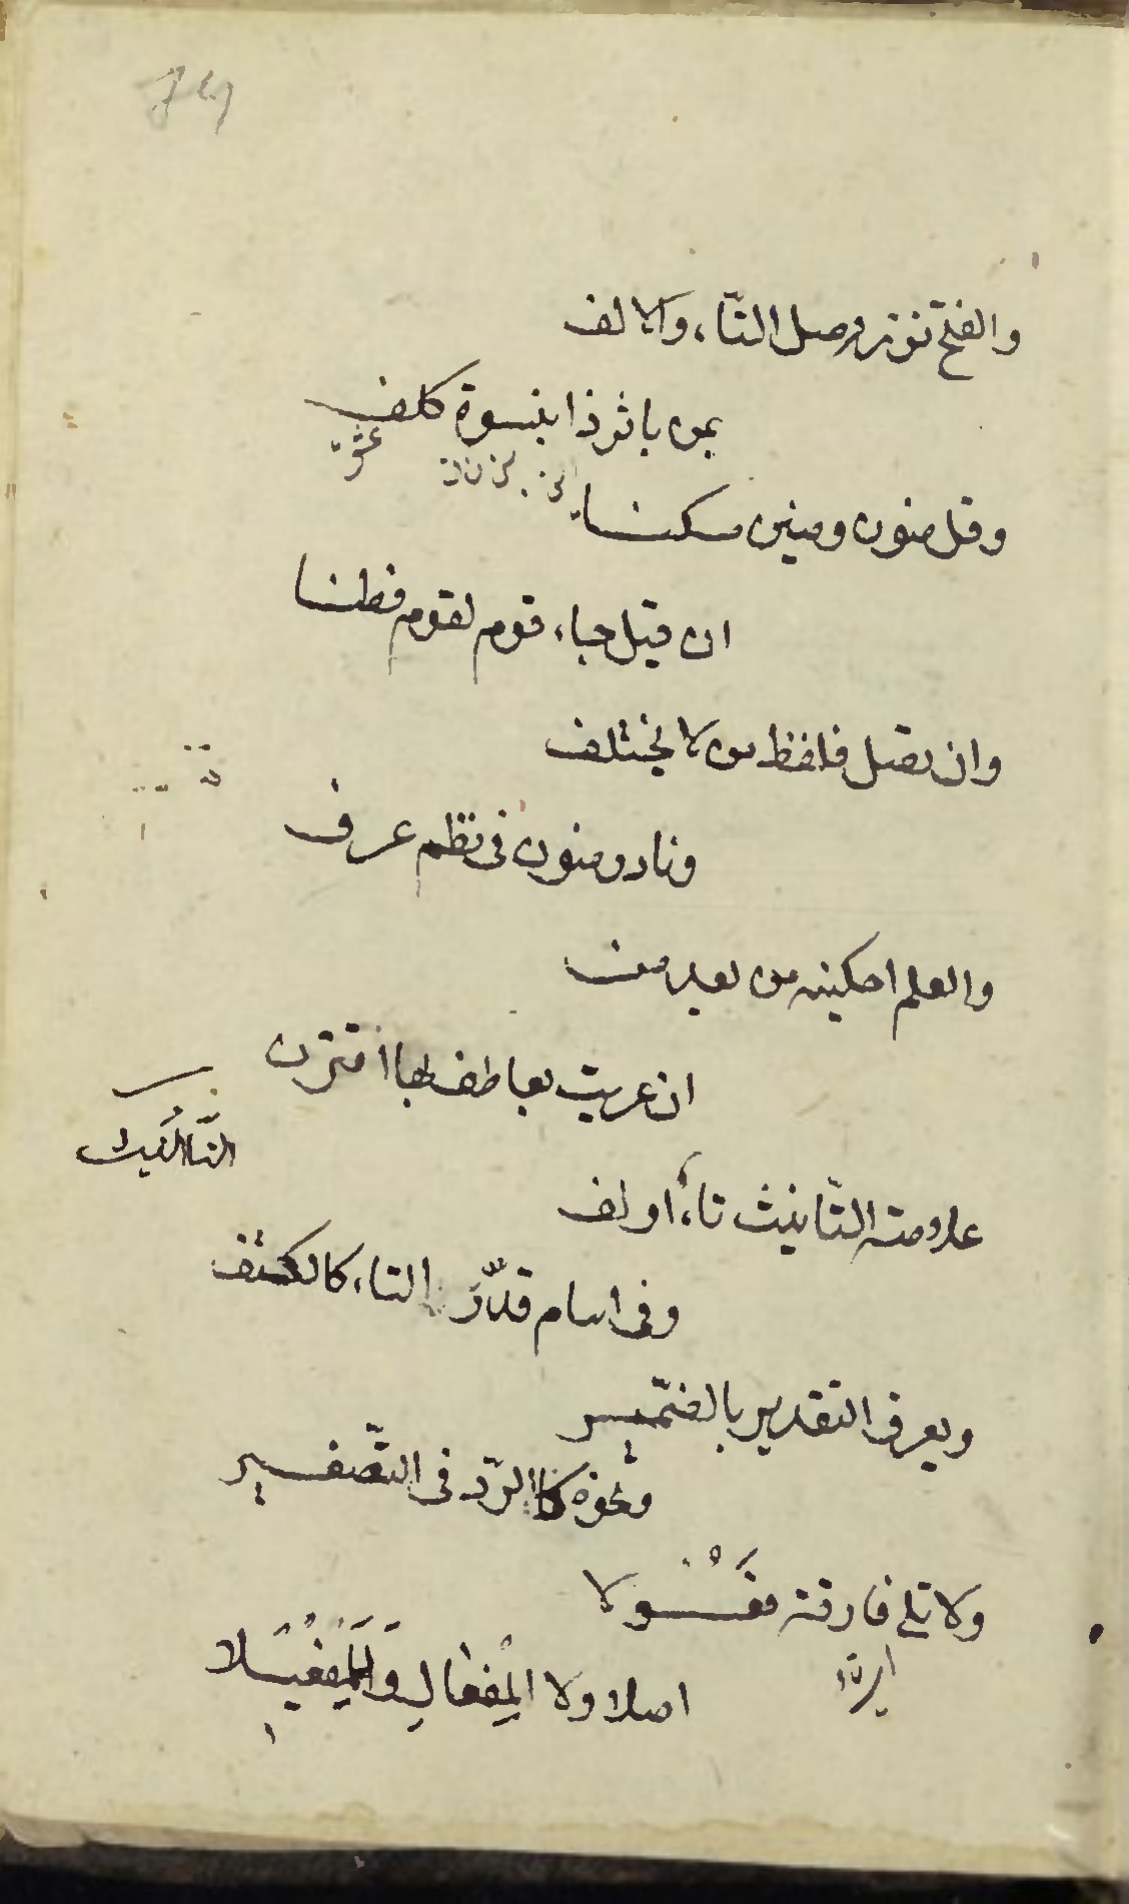 والفتح نزر وصل التاء والالف
بمن باثر ذا بنسوة كلف
وقل منون ومنين مسكنا
ان قيل جاء قوم لقوم فطنا
وان تصل فلفظ من لا يختلف
ونادر منون فى نظم عرف
والعلم احكينه من بعد من
ان عريت بعاطف بها اقترن
التانيث
علامة التّانيث تاء او الف
وفى اسام قدّرَ التاء كالكتف
ويعرف التقدير بالضّمير
ونحوه كالردّ فى التّصغير
ولا تلى فارقة فَعُولا
اصلا ولا المِفْعَالِ والمِفْعِيلا